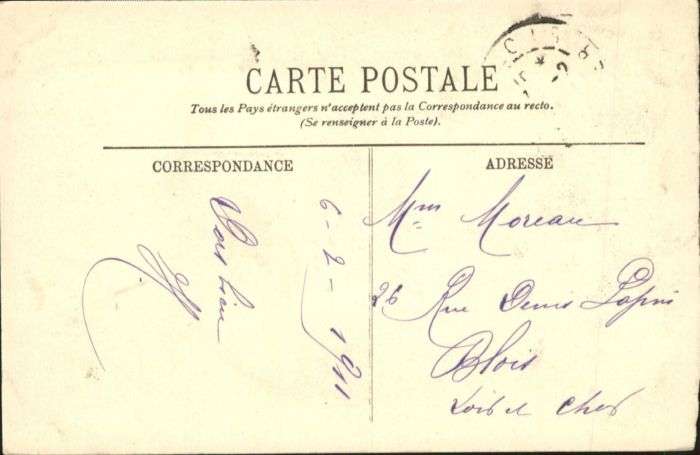 CARTE POSTALE
Tous les Pays étrangers n'acceptent pas la Correspondance au recto.
(Se renseigner à la Poste).
CORRESPONDANCE
ADRESSE
6-2-1911
bien
Mme Moreau
26 Rue Denis Papin
Blois
Loir et Cher